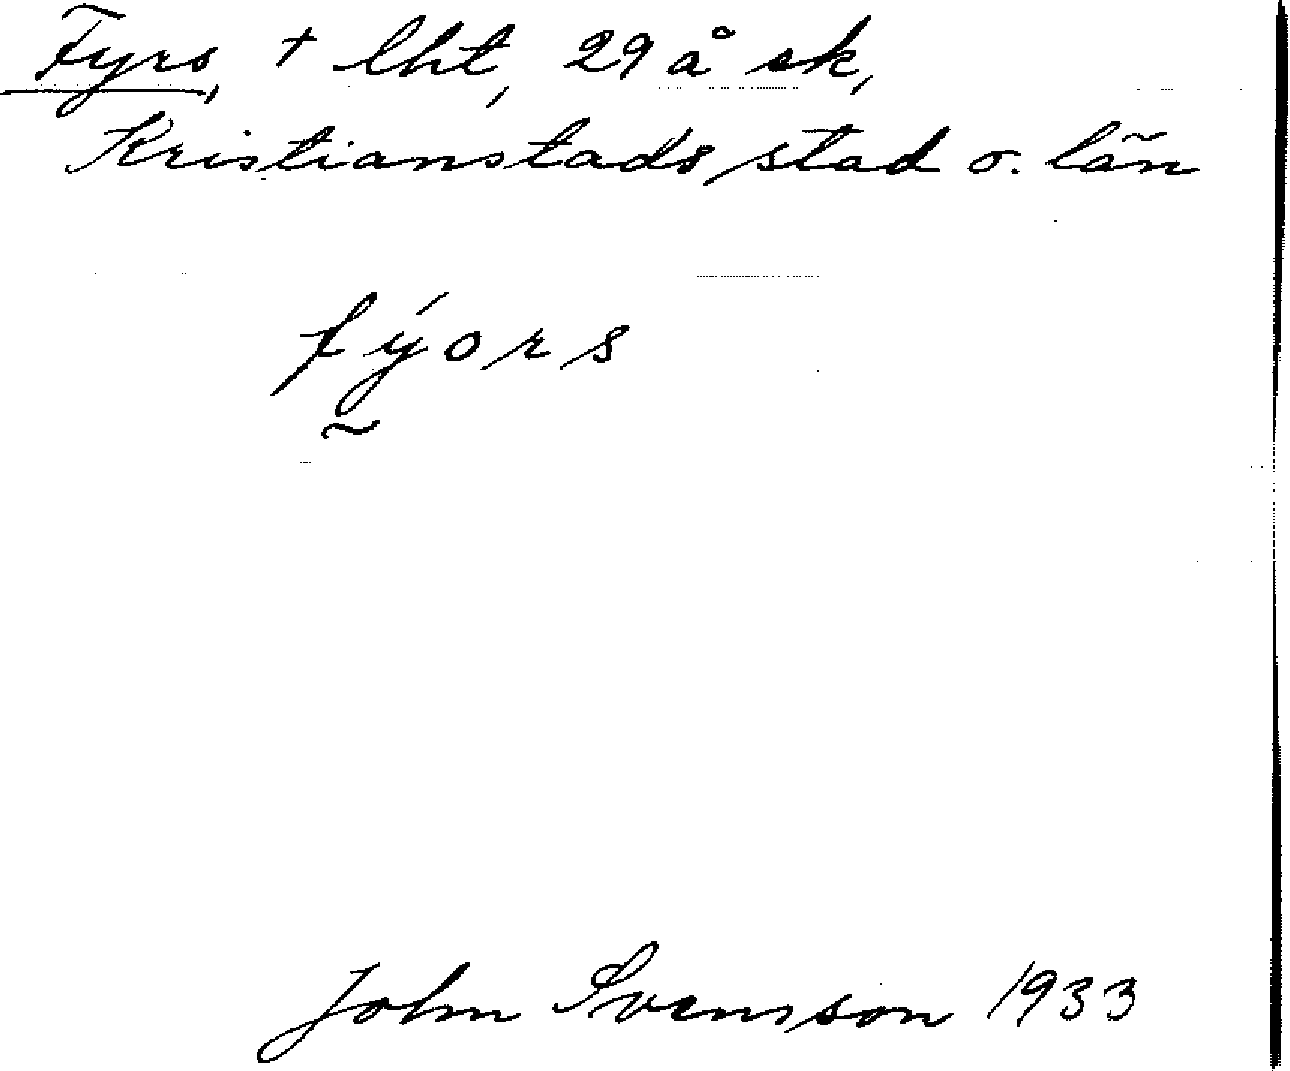 Fyrs, + lht, 29 å sk,
Kristianstads stad o. län
fýors
John Svensson 1933